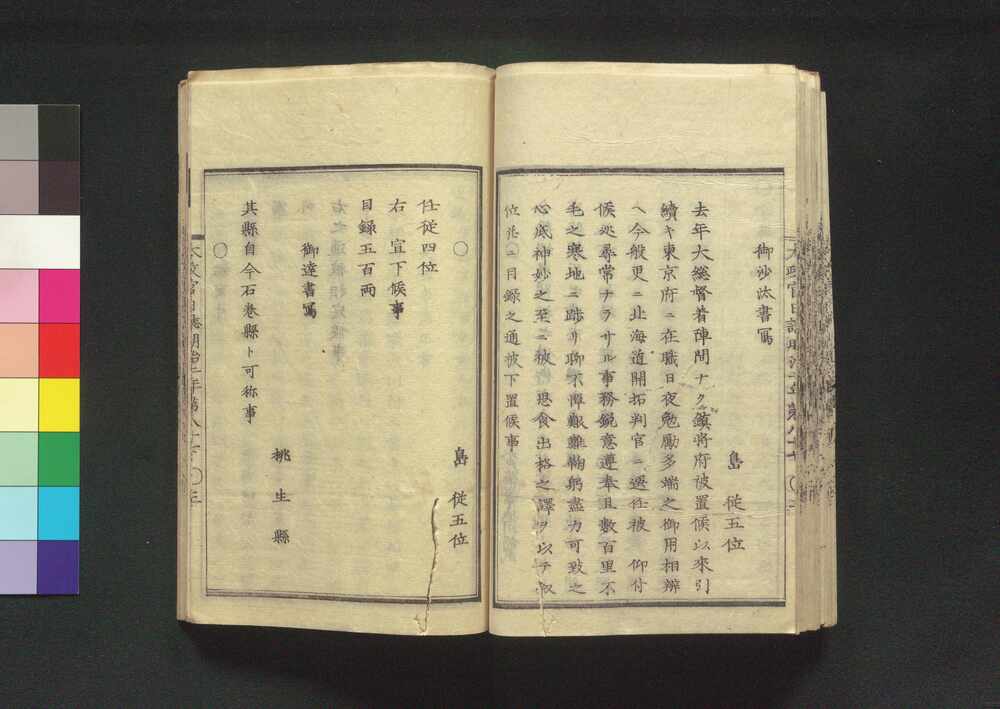 御沙汰書寫
島 従五位
去年大總督着陣間ナク鎮将府被置候以來引
續キ東京府ニ在職日夜勉勵多端之御用相辨
ヘ今般更ニ北海道開拓判官ニ遷任被 仰付
候処尋常ナラサル事務鋭意遵奉且數百里不
毛之寒地ニ跋リ聊不憚艱難鞠躬盡力可致之
心底神妙之至ニ被 思食出格之譯ヲ以テ叙
位並ニ目録之通被下置候事
〇
島 従五位
任従四位
右 宣下候事
目録五百両
御達書寫
桃生縣
其縣自今石巻縣ト可称事
〇
太政官日誌明治二年第八十七 〇三